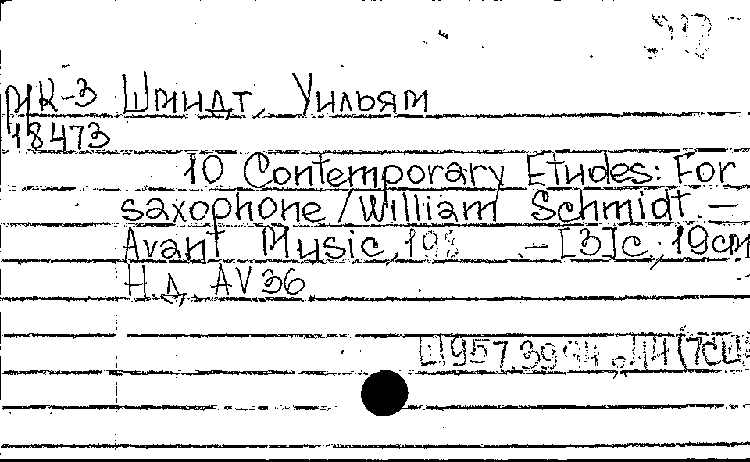 МК-3 Шмидт, Уильям
18473
10 Contemporary Etudes: For
saxophone / William Schmidt =
Avant Music, 198 .– [3]с.; 19см
Н.д. AV 36